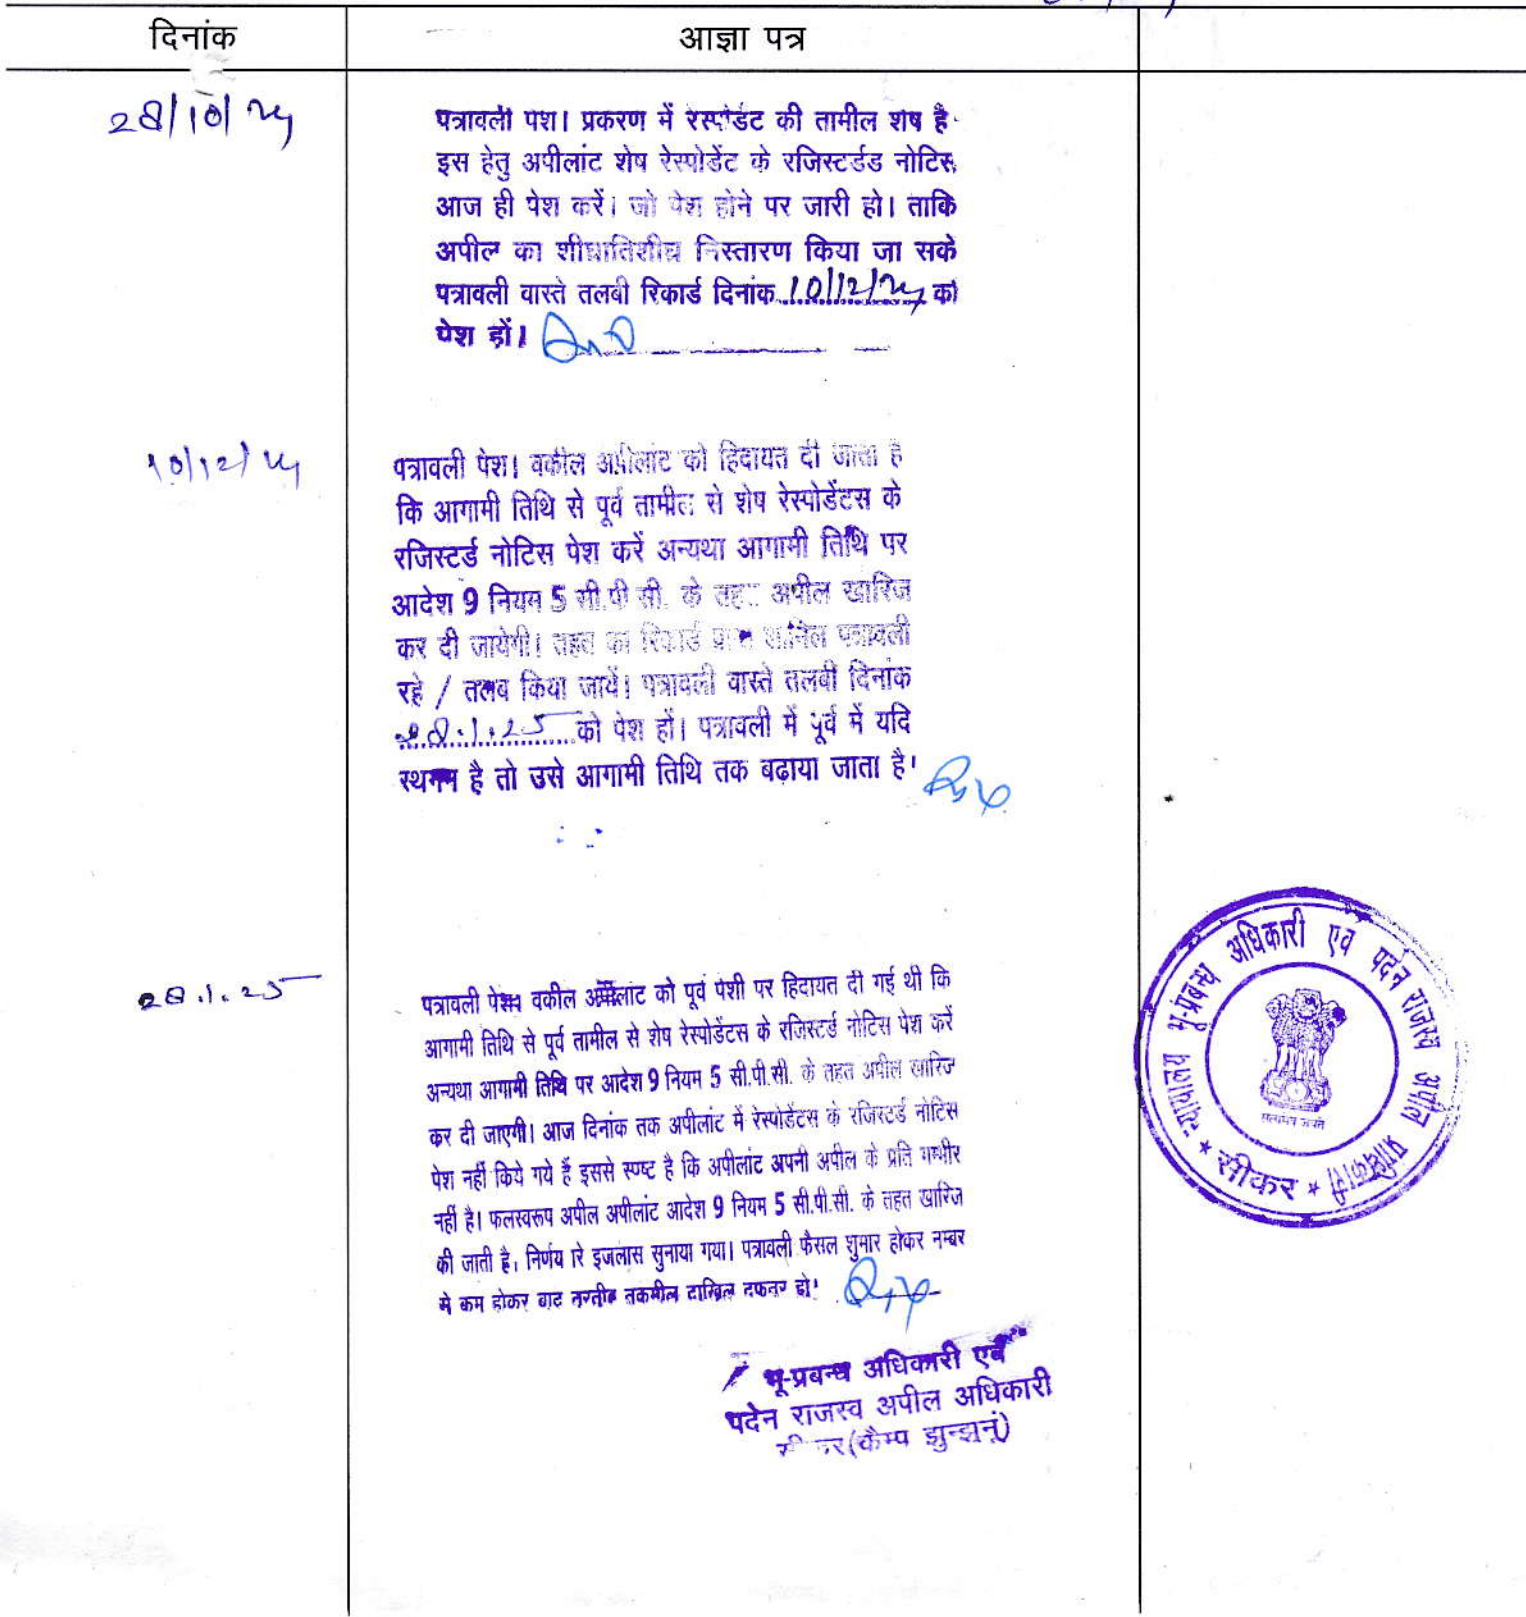 दिनांक
आज्ञा पत्र
28/10/24
पत्रावली पेश। प्रकरण में रेस्पोडेंट की तामील शेष है
इस हेतु अपीलांट शेष रेस्पोडेंट के रजिस्टर्डड नोटिस
आज ही पेश करें। जो पेश होने पर जारी हो। ताकि
अपील का शीघ्रातिशीघ्र निस्तारण किया जा सके
पत्रावली वास्ते तलबी रिकार्ड दिनांक 10/12/24 को
पेश हों।
10/12/24
पत्रावली पेश। वकील अपीलांट को हिदायत दी जाता है
कि आगामी तिथि से पूर्व तामील से शेष रेस्पोडेंटस के
रजिस्टर्ड नोटिस पेश करें अन्यथा आगामी तिथि पर
आदेश 9 नियम 5 सी.पी.सी. के तहत अपील खारिज
कर दी जायेगी। तहत का रिकार्ड प्राप्त शामिल पत्रावली
रहे / तलब किया जायें। पत्रावली वास्ते तलबी दिनांक
28.1.25 को पेश हों। पत्रावली में पूर्व में यदि
स्थगन है तो उसे आगामी तिथि तक बढ़ाया जाता है।
28.1.25
पत्रावली पेश। वकील अपीलांट को पूर्व पेशी पर हिदायत दी गई थी कि
आगामी तिथि से पूर्व तामील से शेष रेस्पोडेंटस के रजिस्टर्ड नोटिस पेश करें
अन्यथा आगामी तिथि पर आदेश 9 नियम 5 सी.पी.सी. के तहत अपील खारिज
कर दी जाएगी। आज दिनांक तक अपीलांट में रेस्पोडेंटस के रजिस्टर्ड नोटिस
पेश नहीं किये गये हैं इससे स्पष्ट है कि अपीलांट अपनी अपील के प्रति गम्भीर
नहीं है। फलस्वरूप अपील अपीलांट आदेश 9 नियम 5 सी.पी.सी. के तहत खारिज
की जाती है, निर्णय रे इजलास सुनाया गया। पत्रावली फैसल शुमार होकर नम्बर
से कम होकर बाद तरतीब तकमील दाखिल दफतर हो।
भू-प्रबन्ध अधिकारी एवं
पदेन राजस्व अपील अधिकारी
सीकर (कैम्प झुन्झुनूं)
न्यायालय भू-प्रबन्ध अधिकारी एवं पदेन राजस्व अपील प्राधिकारी
सत्यमेव जयते
* सीकर *